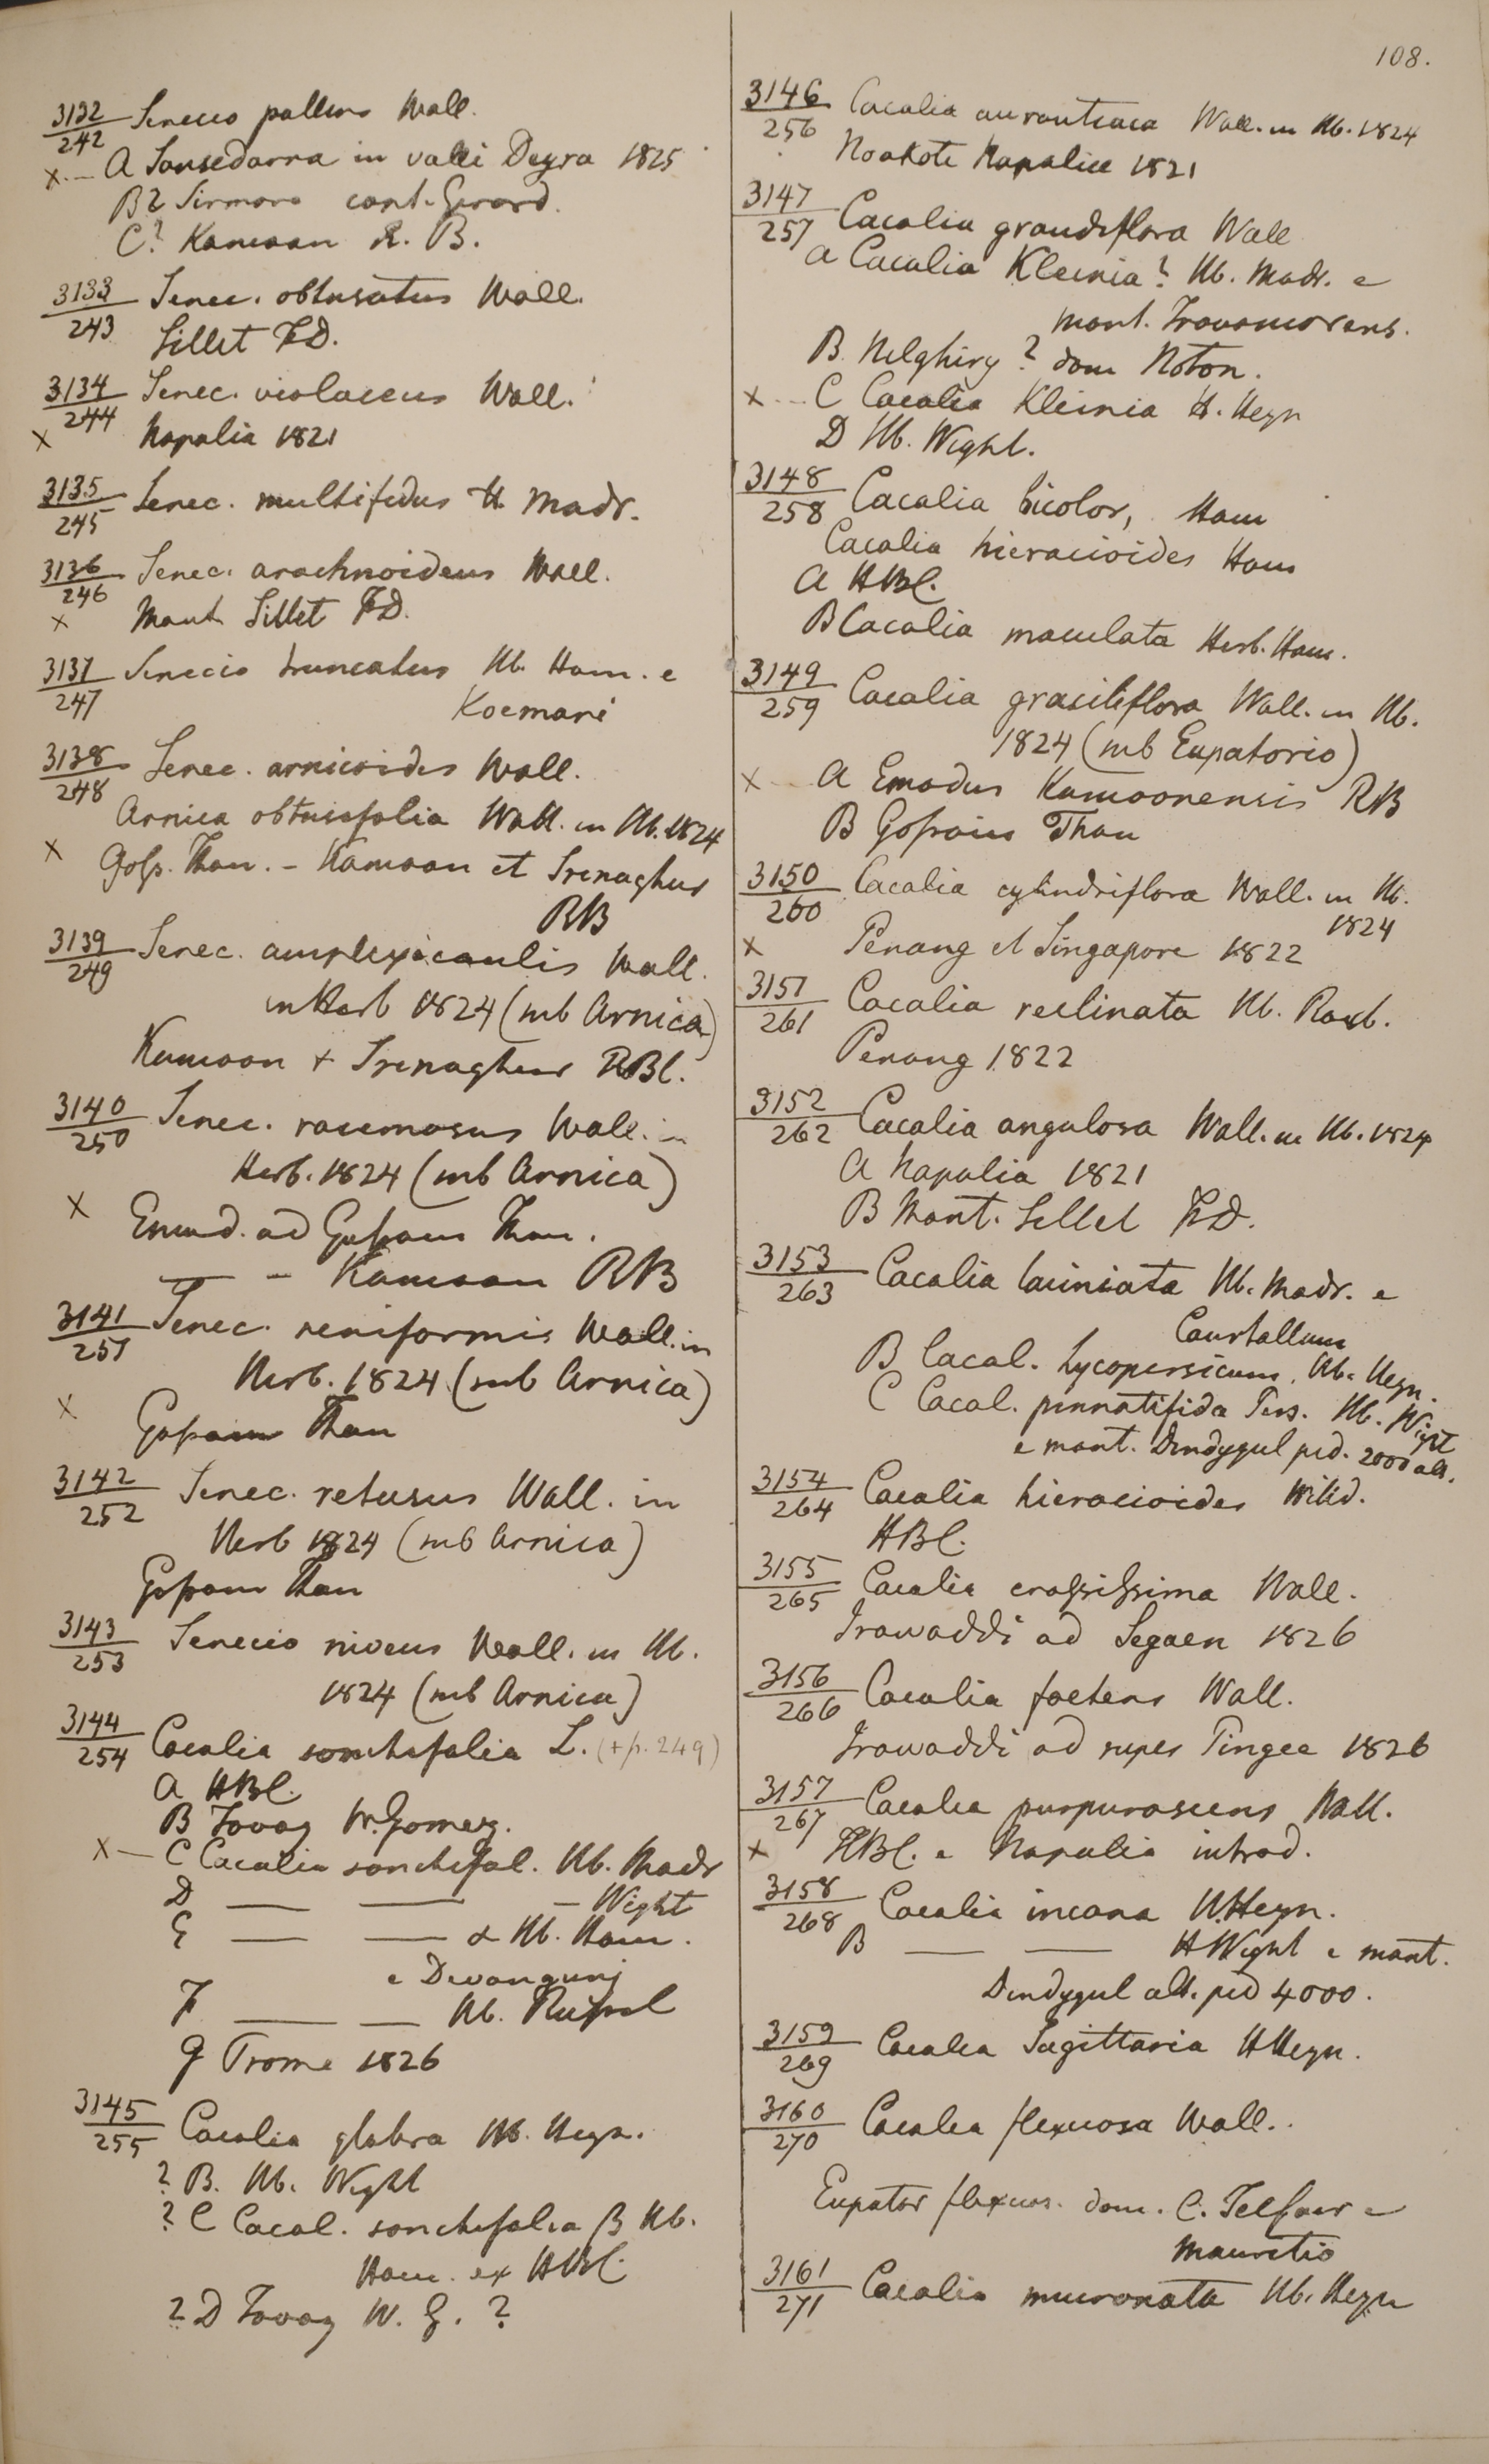 108.
3132/242 Senecio pallens Wall.
x.— A Sansedarra in valli Deyra 1825
B? Sirmore cont. Gerard.
C? Kamaon R. B.
3133/243 Senec. obtusatus Wall.
Sillet FD.
3134/244 Senec. violaceus Wall.
x Napalia 1821
3135/245 Senec. multifidus H. Madr.
3136/246 Senec. arachnoideus Wall.
x Mont. Sillet FD.
3137/247 Senecio truncatus Hb. Ham. e
Koemari
3138/248 Senec. arnicoides Wall.
Arnica obtusifolia Wall. in Hb. 1824
x Goss. Than. – Kamaon et Srenaghur
RB
3139/249 Senec. amplexicaulis Wall.
in Herb 1824 (sub Arnica)
Kamaon + Srenaghur RBl.
3140/250 Senec. racemosus Wall. in
Herb. 1824 (sub Arnica)
x Emod. ad Gossain Than.
— – Kamaon RB
3141/251 Senec. reniformis Wall. in
Herb. 1824 (sub Arnica)
x Gossain Than
3142/252 Senec. retusus Wall. in
Herb 1824 (sub Arnica)
Gossain Than
3143/253 Senecio niveus Wall. in Hb.
1824 (sub Arnica)
3144/254 Cacalia sonchifolia L. (+p. 249)
A HBC.
B Tavoy W. Gomez.
x — C Cacalia sonchifol. Hb. Madr
D — — – Wight
E — — α Hb. Ham.
e Dewangunj
F — — Hb. Russel
G Prome 1826
3145/255 Cacalia glabra Hb. Heyn.
? B. Hb. Wight
? C Cacal. sonchifolia β Hb.
Ham. ex HBC
? D Tavoy W. G. ?
3146/256 Cacalia aurantiaca Wall. in Hb. 1824
Noakote Napaliae 1821
3147/257 Cacalia grandiflora Wall
A Cacalia Kleinia? Hb. Madr. e
mont. Travancorens.
B. Nelghiry? dom Noton.
x... C Cacalia Kleinia H. Heyn
D Hb. Wight.
3148/258 Cacalia bicolor, Ham
Cacalia hieracioides Ham
A HBC.
B Cacalia maculata Herb. Ham.
3149/259 Cacalia graciliflora Wall. in Hb.
1824 (sub Eupatorio)
x A Emodus Kamaonensis RB
B Gossain Than
3150/260 Cacalia cylindriflora Wall. in Hb.
1824
x Penang et Singapore 1822
3151/261 Cacalia reclinata Hb. Roxb.
Penang 1822
3152/262 Cacalia angulosa Wall. in Hb. 1824
A Napalia 1821
B Mont. Sillet FD.
3153/263 Cacalia laciniata Hb. Madr. e
Courtallum
B Cacal. Lycopersicum, Hb. Heyn.
C Cacal. pinnatifida Pers. Hb. Wight
e mont. Dindygul ped. 2000 alt.
3154/264 Cacalia hieracioides Willd.
HBC.
3155/265 Cacalia crassissima Wall.
Irawaddi ad Segaen 1826
3156/266 Cacalia foetens Wall.
Irawaddi ad rupes Pingee 1826
3157/267 Cacalia purpurascens Wall.
x HBC. e Napalia introd.
3158/268 Cacalia incana H. Heyn.
B — — H Wight e mont.
Dindygul alt. ped 4000.
3159/269 Cacalia Sagittaria H Heyn.
3160/270 Cacalia flexuosa Wall.
Eupator flexuos. dom. C. Telfair e
Mauritio
3161/271 Cacalia mucronata Hb. Heyn